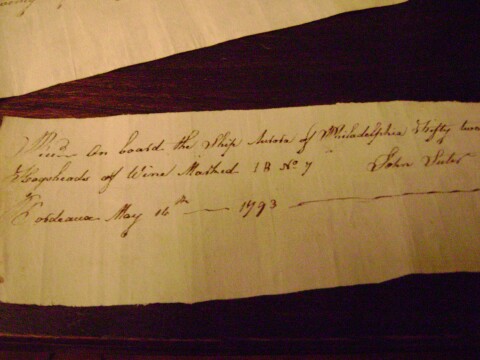 Recd on board the Ship Aurora of Philadelphia Fifty
Hogsheads of Wine Marked I B No 7 John Suter
Bordeaux May 16th — 1793